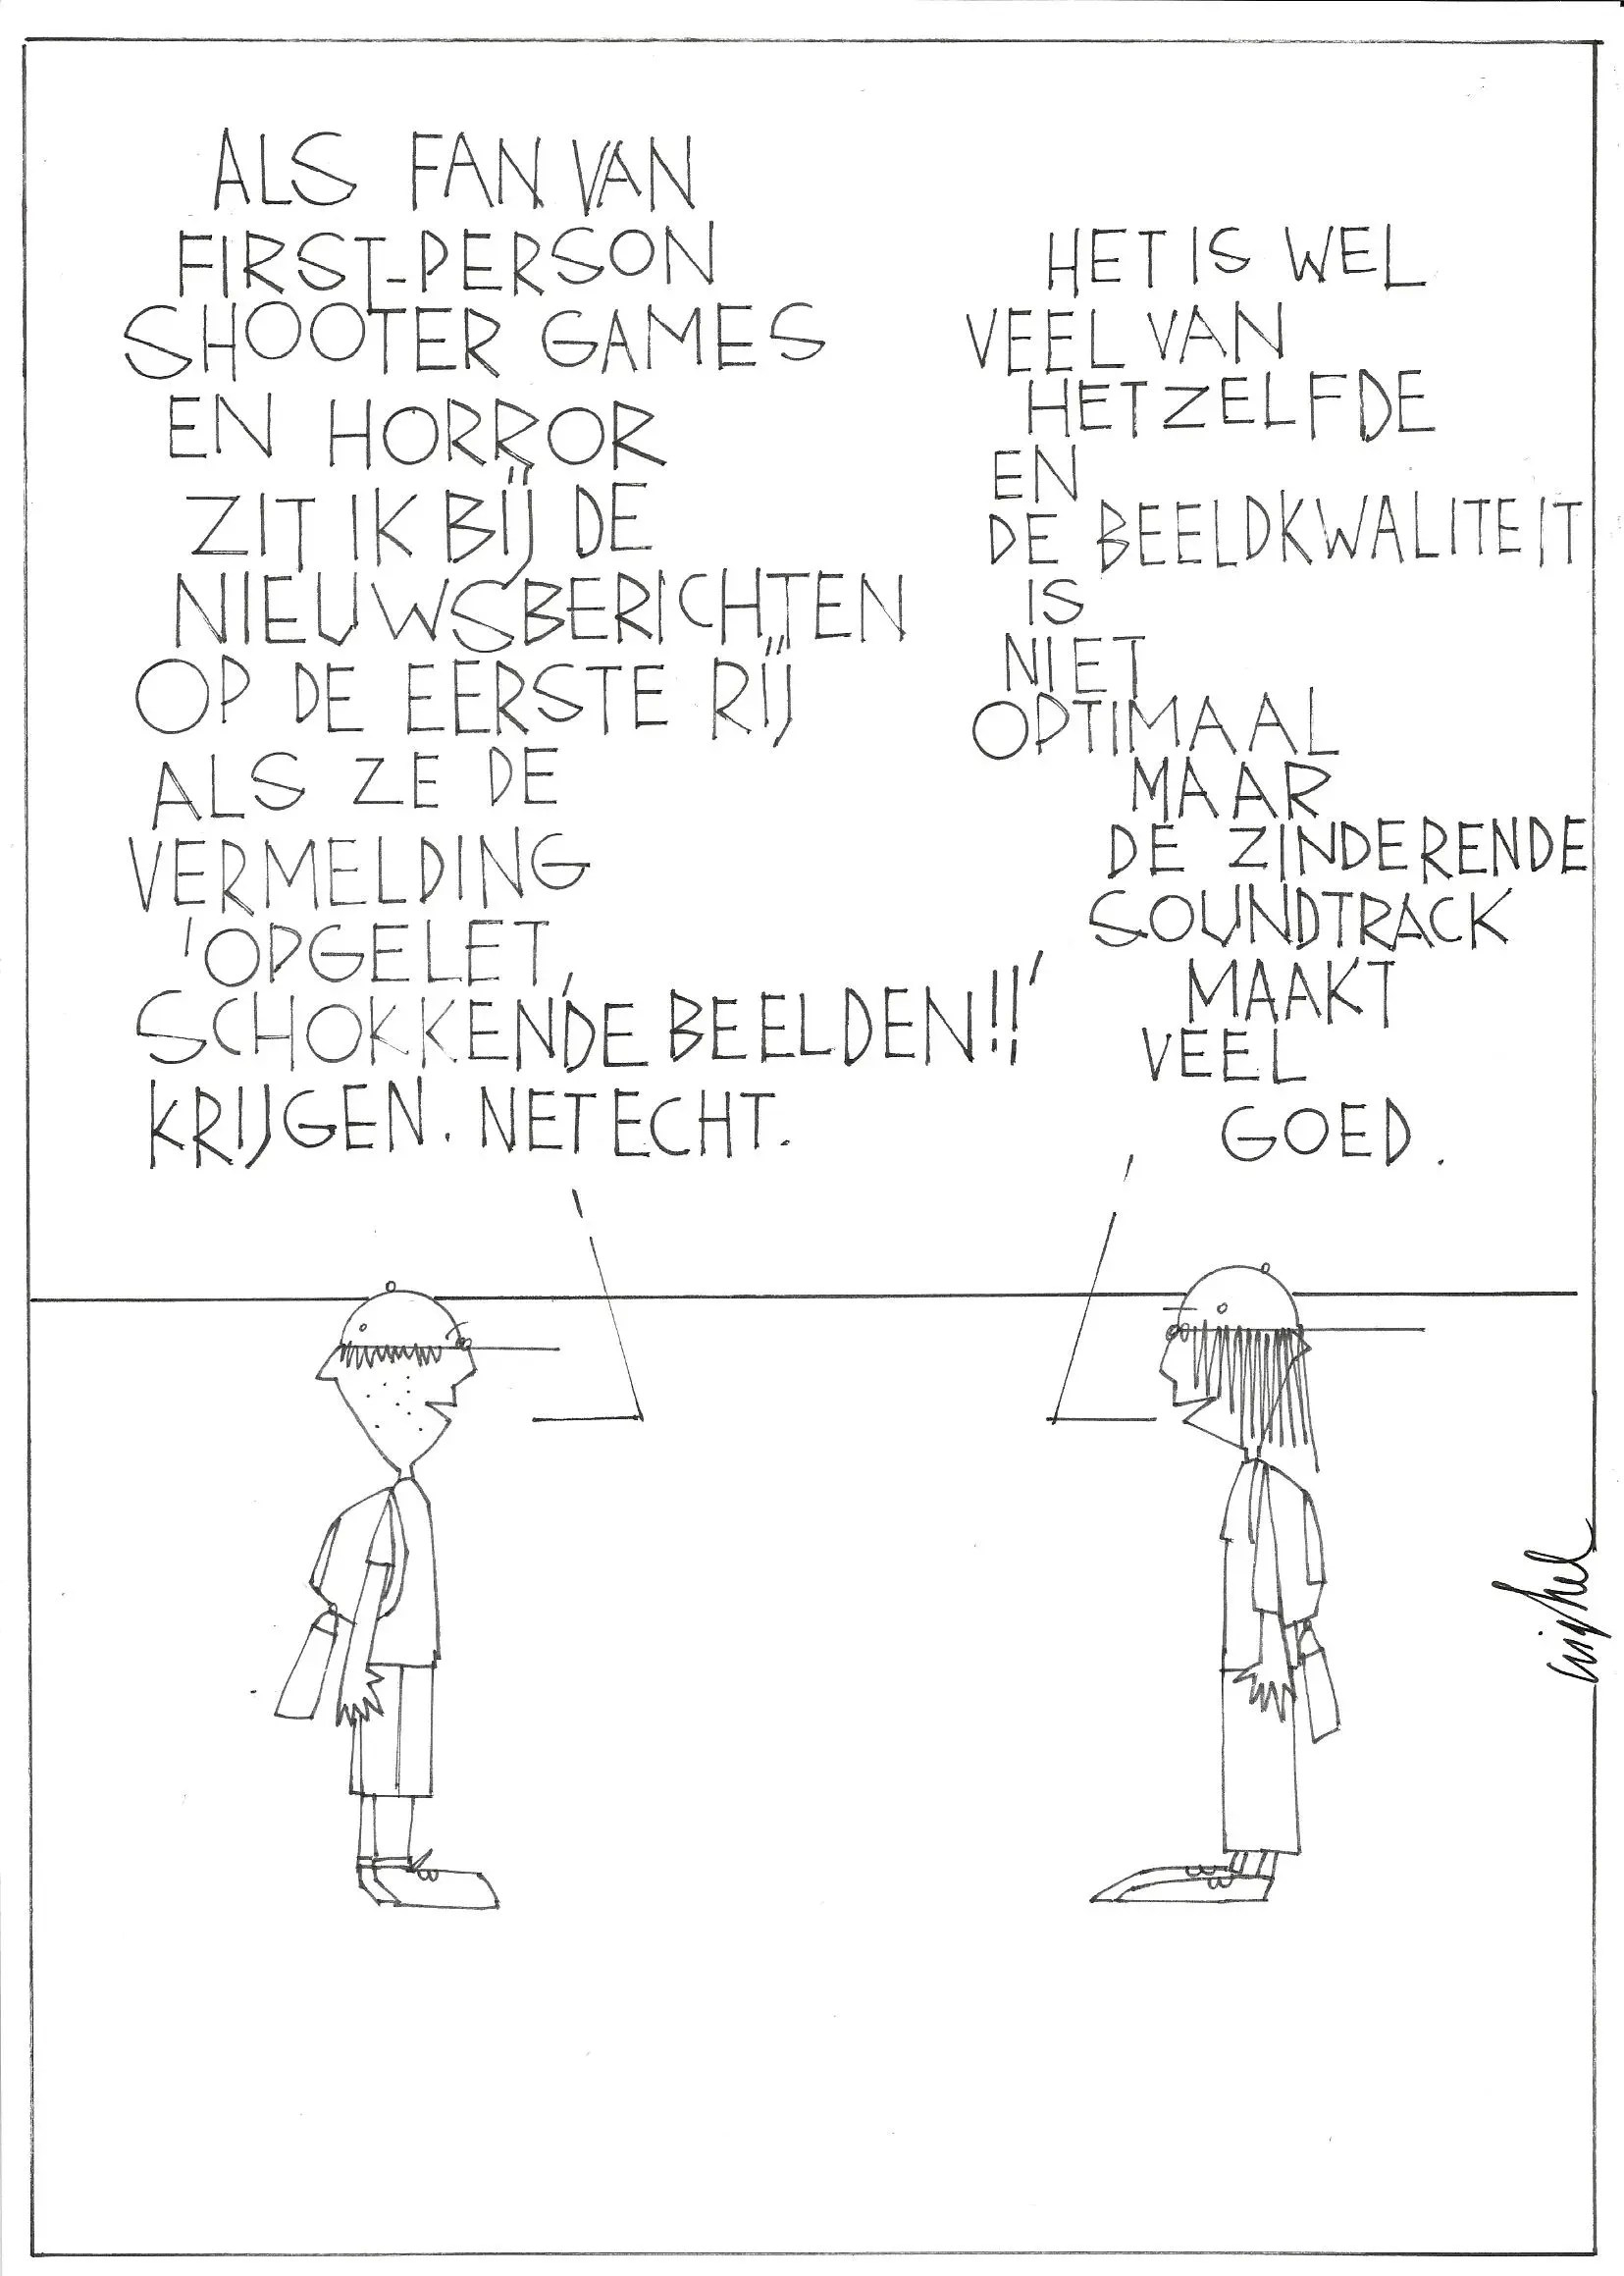 ALS FAN VAN
FIRST-PERSON
SHOOTER GAMES
EN HORROR
ZIT IK BIJ DE
NIEUWSBERICHTEN
OP DE EERSTE RIJ
ALS ZE DE
VERMELDING
'OPGELET,
SCHOKKENDE BEELDEN!!'
KRIJGEN. NET ECHT.
HET IS WEL
VEEL VAN
HETZELFDE
EN
DE BEELDKWALITEIT
IS
NIET
OPTIMAAL
MAAR
DE ZINDERENDE
SOUNDTRACK
MAAKT
VEEL
GOED.